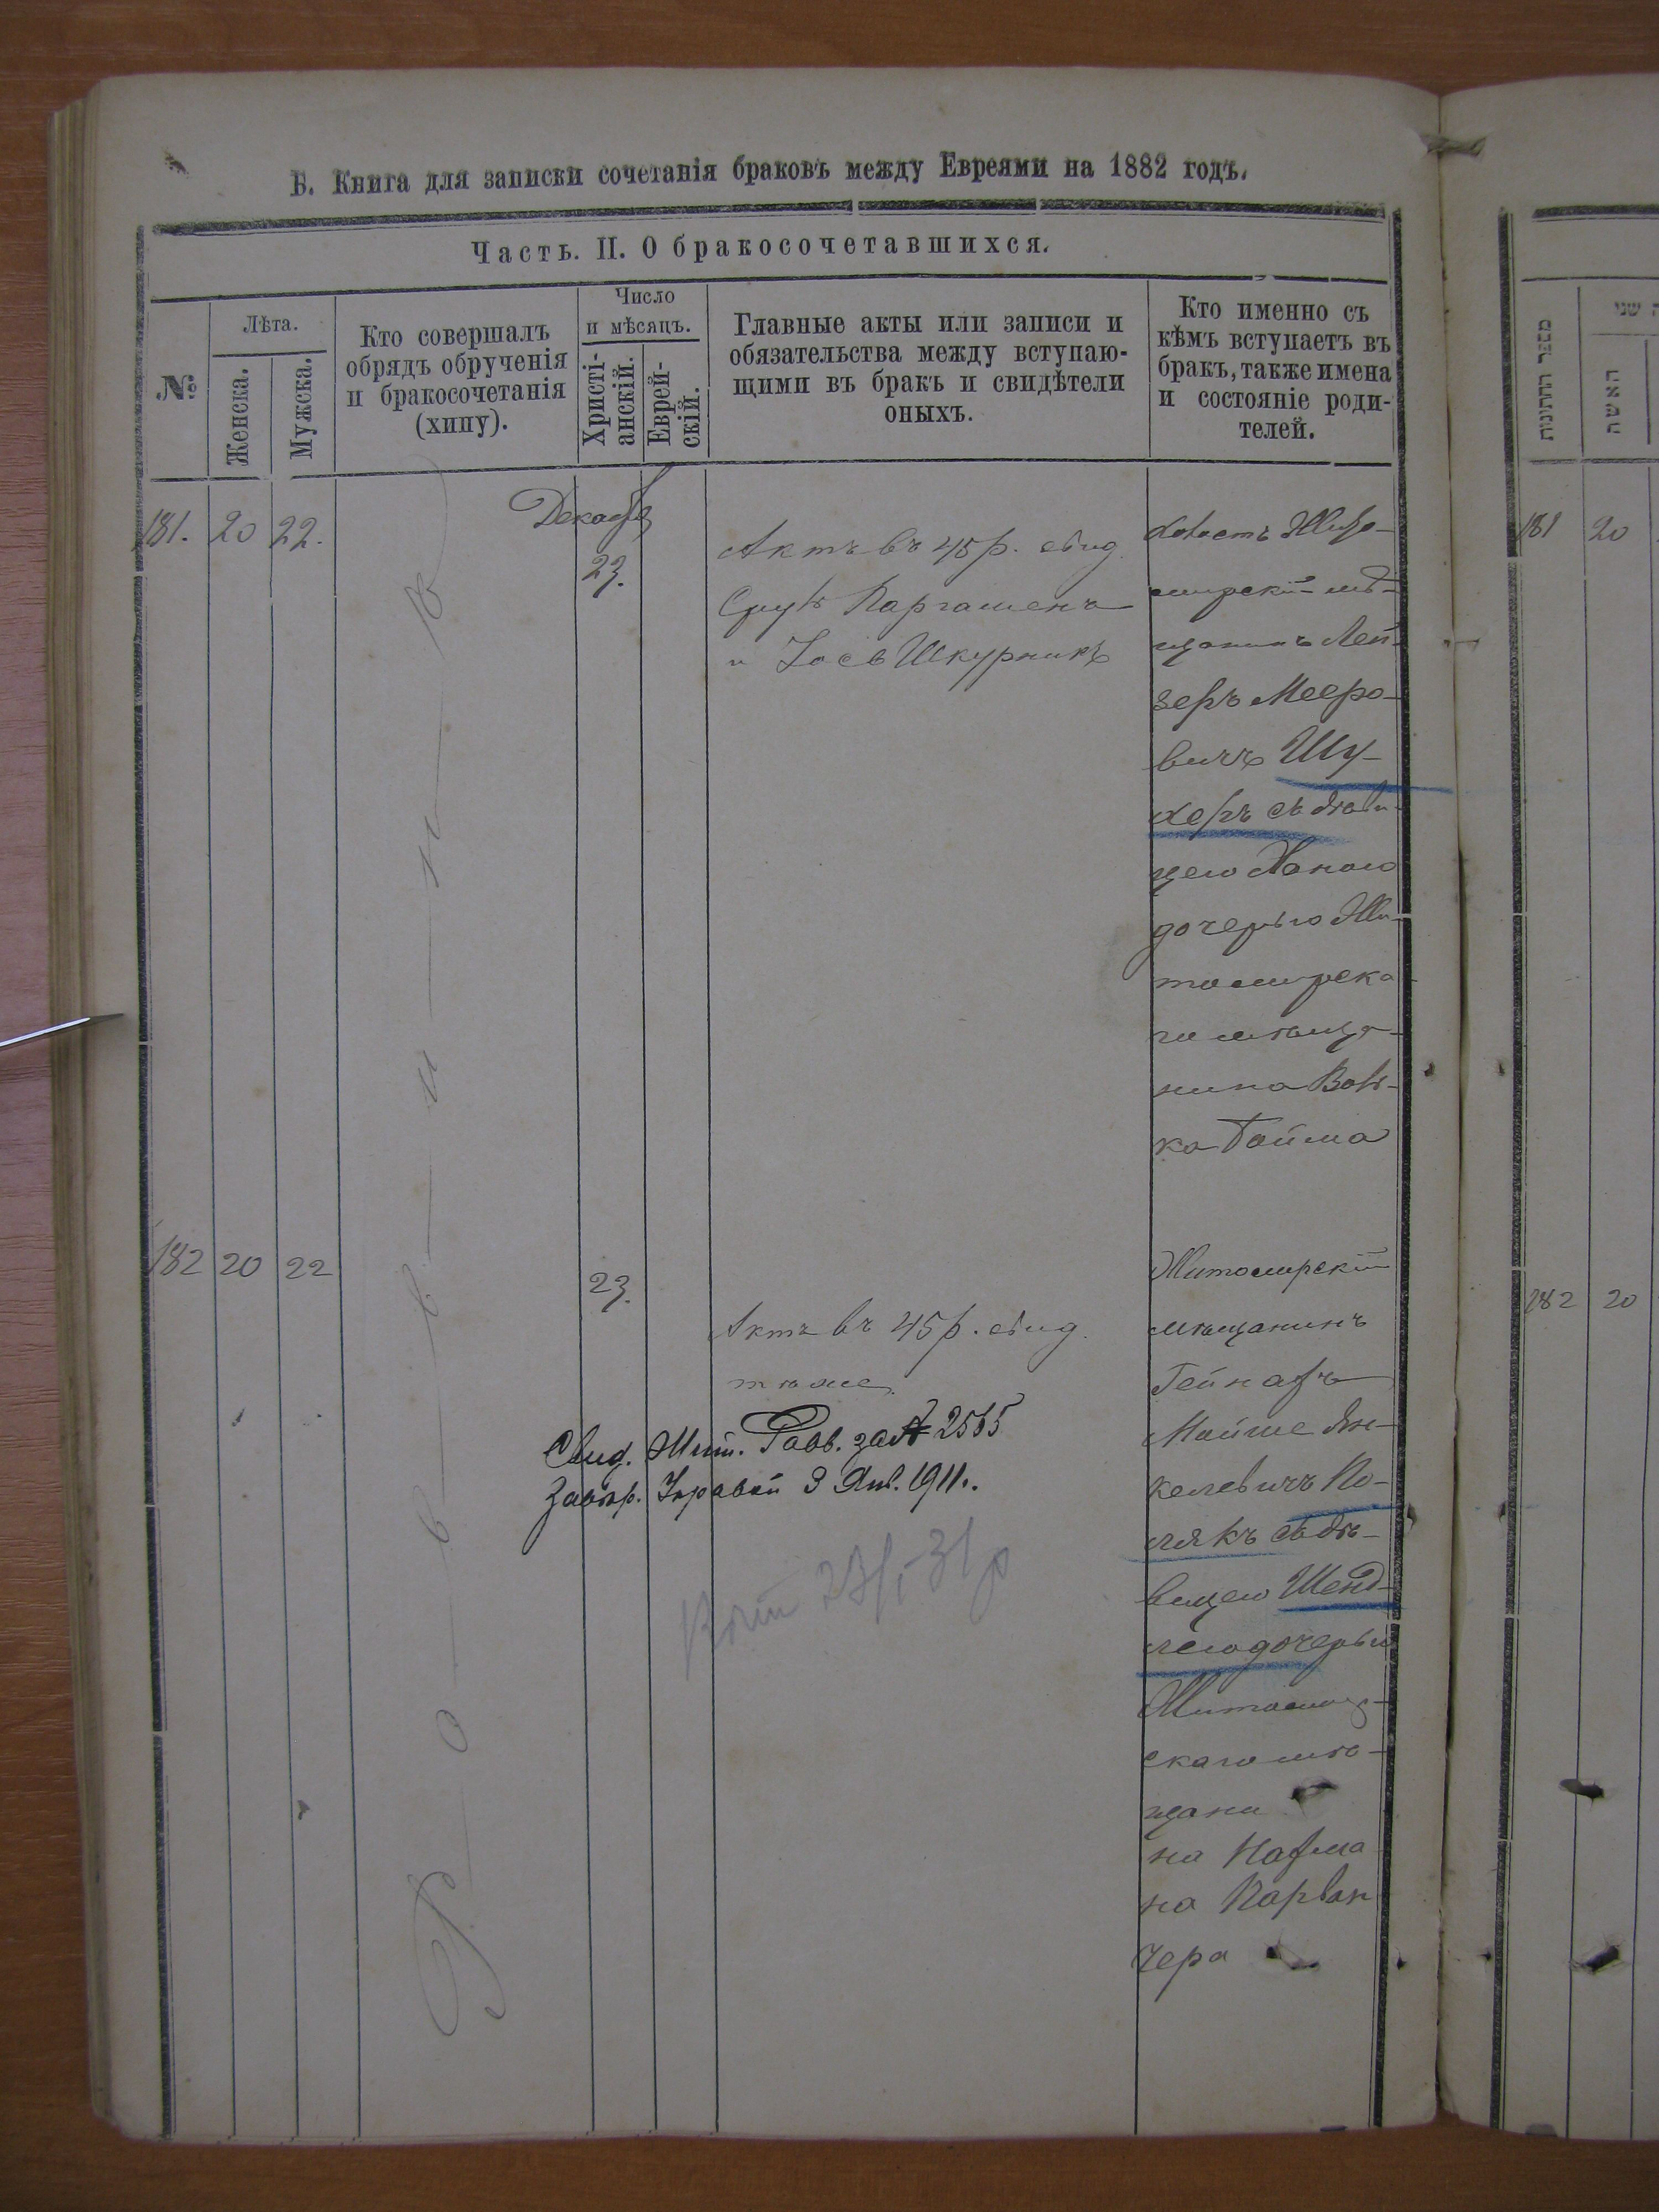 Б. Книга для записки сочетанія браковъ между Евреями на 1882 годъ.
Часть. II. О бракосочетавшихся.
№
Лѣта.
Женска.
Мужска.
Кто совершалъ
обрядъ обрученія
и бракосочетанія
(хипу).
Число
и мѣсяцъ.
Христі-
анскій.
Еврей-
скій.
Главные акты или записи и
обязательства между вступаю-
щими въ бракъ и свидѣтели
оныхъ.
Кто именно съ
кѣмъ вступаетъ въ
бракъ, также имена
и состояніе роди-
телей.
181. 20 22.
Декабр
23.
Актъ въ 45 р. свид.
Сруль
и Іось Шкурникъ
холостъ Жито-
мирскій мѣ-
щанинъ Лей-
зеръ Мееро-
вичъ Шу-
херъ съ дѣви-
цею Ханою
дочерью Жи-
томирска-
го мѣща-
нина Воль-
ка Гойма
182 20 22
23.
Актъ въ 45 р. свид.
тѣже
Свид. Жит. Равв. за № 2565
Завѣр. Управой 3 Янв. 1911.
Житомирскій
мѣщанинъ
Мойше Ян-
келевичъ По-
лякъ съ дѣ-
вицею Шенд-
лею дочерью
Житомир-
скаго мѣ-
щани
на Нахма
на Карван
чера
מספר החתונות
האשה
שני
181 20
182 20